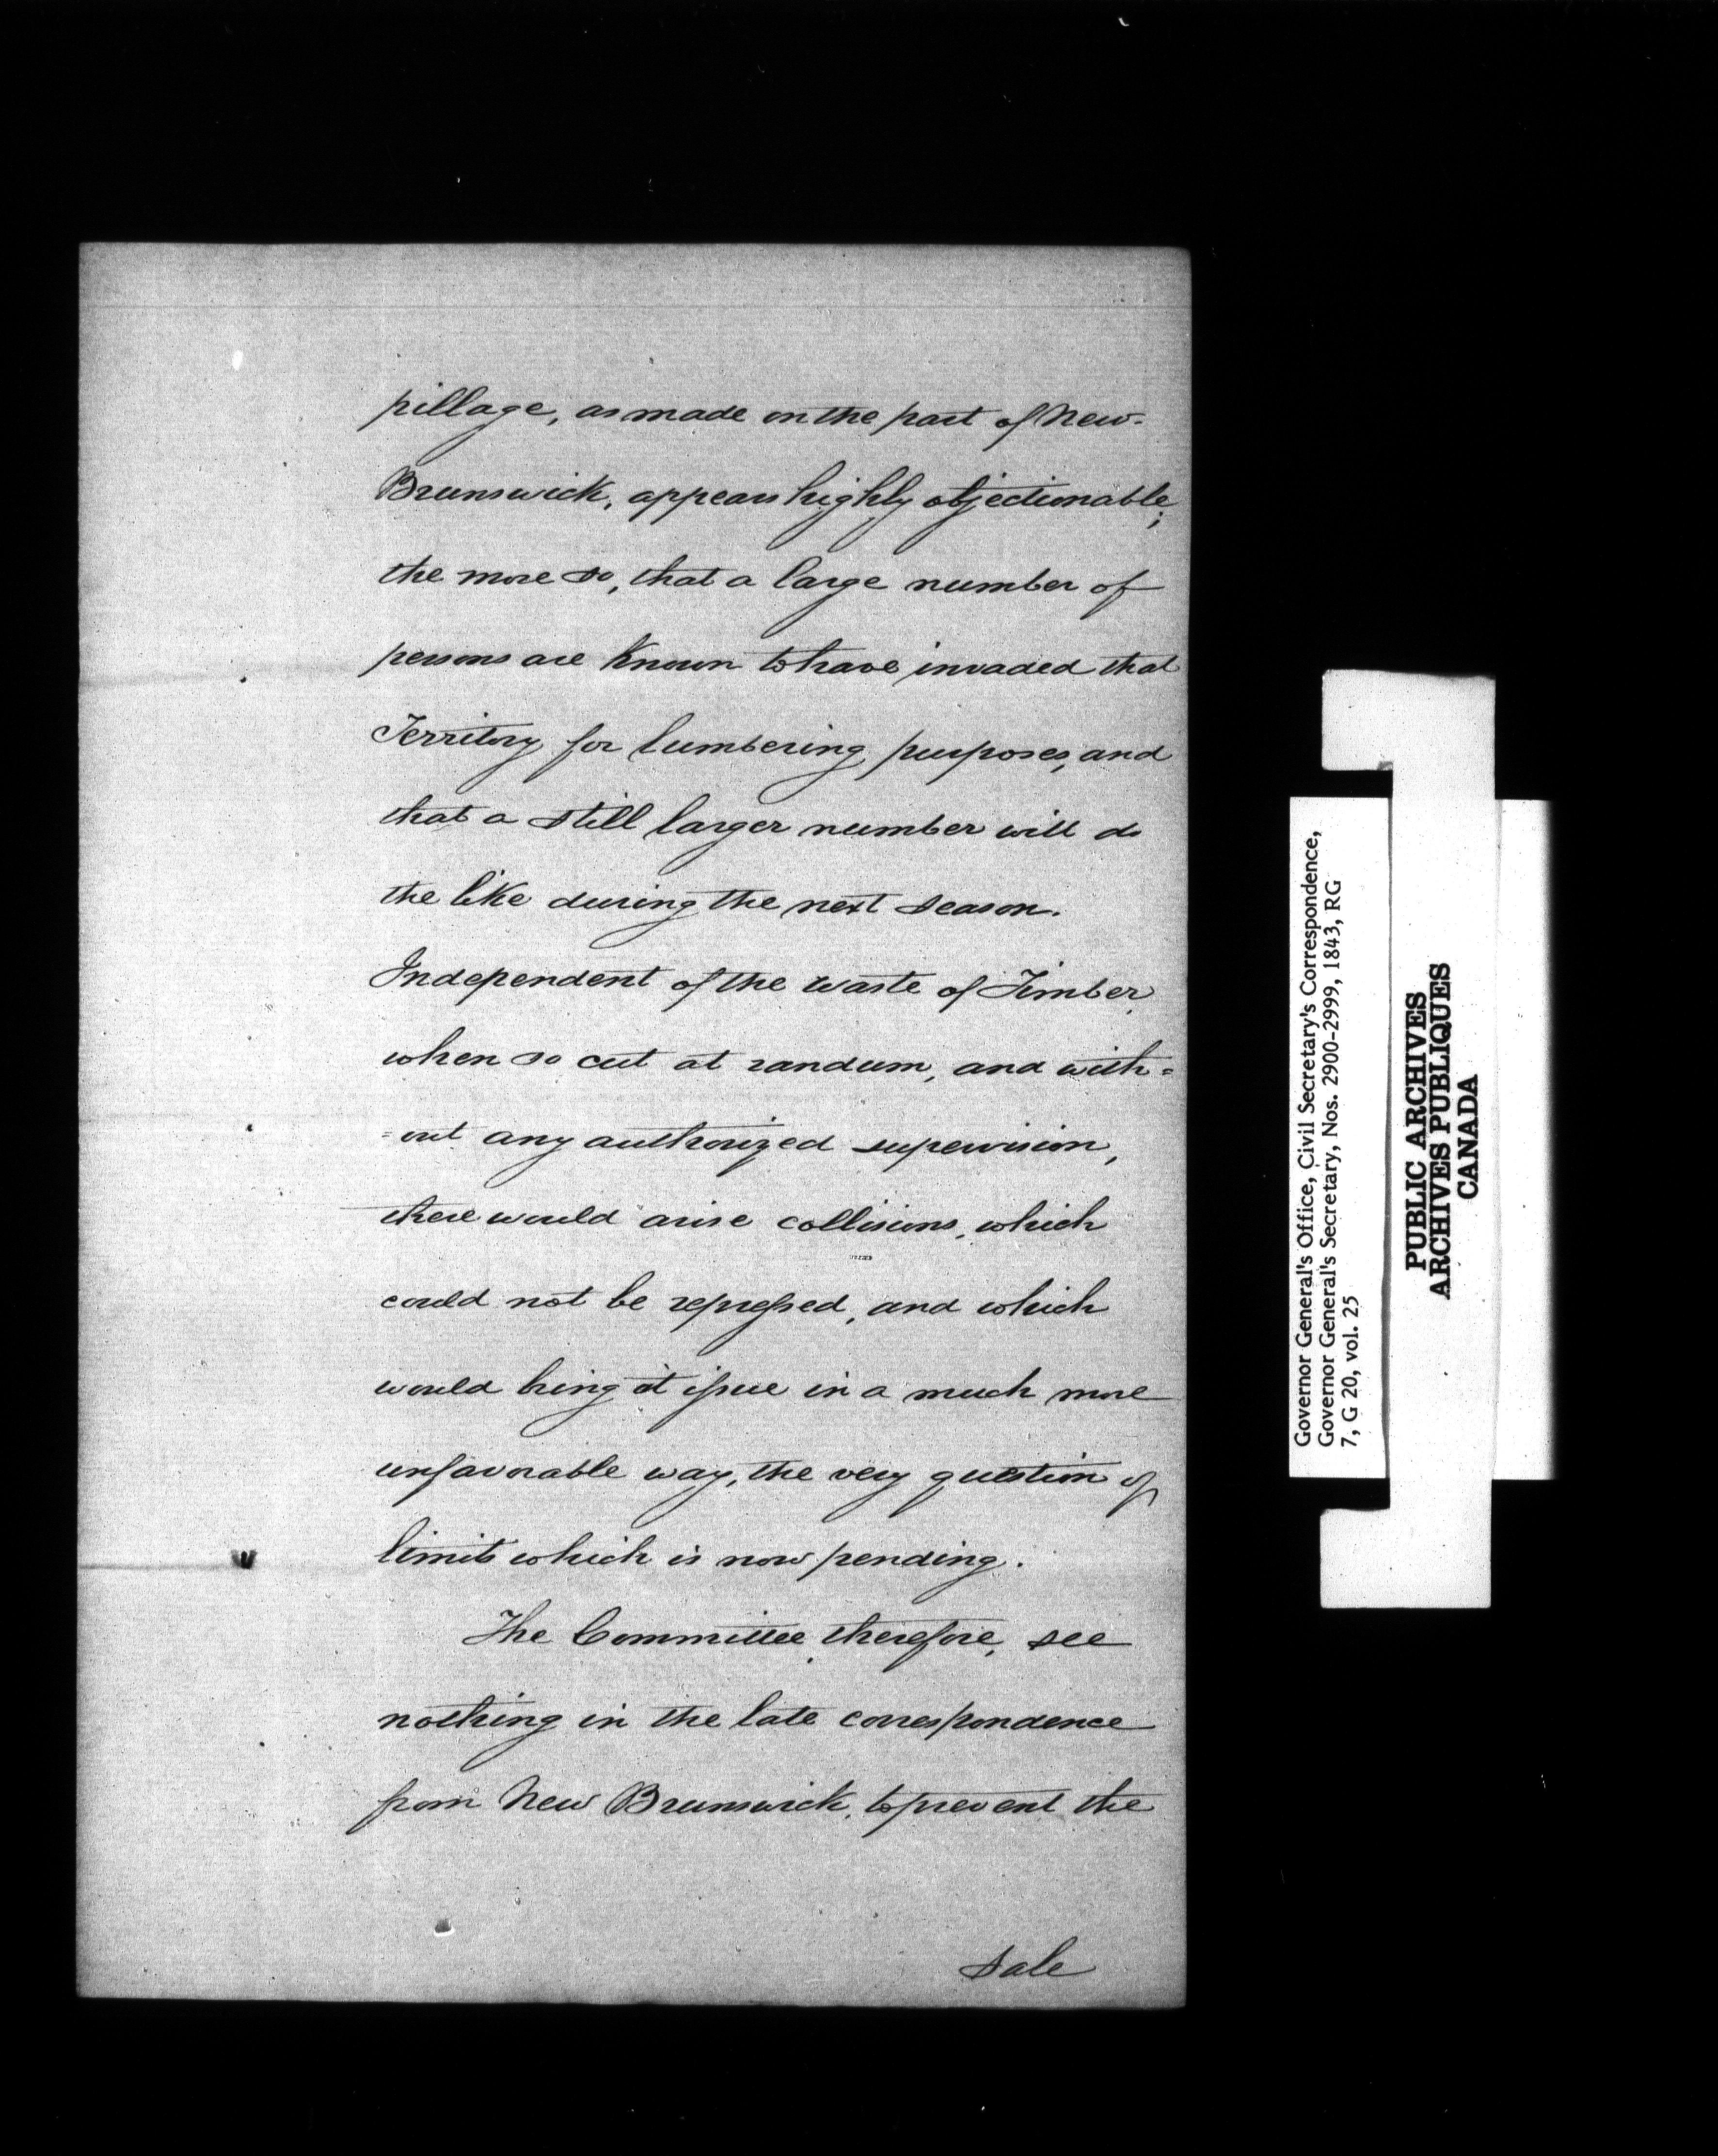 pillage, as made on the part of New-
Brunswick, appears highly objectionable;
the more so, that a large number of
persons are Known to have invaded that
Territory for lumbering purposes, and
that a still larger number will do
the like during the next season.
Independent of the waste of Timber,
when so cut at randum, and with=
=out any authorized supervision,
there would arise collisions, which
could not be repressed, and which
would bring at issue in a much more
unfavorable way, the very question of
limits which is now pending.
The Committee, therefore, see
nothing in the late correspondence
from New Brunswick, to prevent the
sale
Governor General's Office, Civil Secretary's Correspondence,
Governor General's Secretary, Nos. 2900-2999, 1843, RG
7, G 20, vol. 25
PUBLIC ARCHIVES
ARCHIVES PUBLIQUES
CANADA